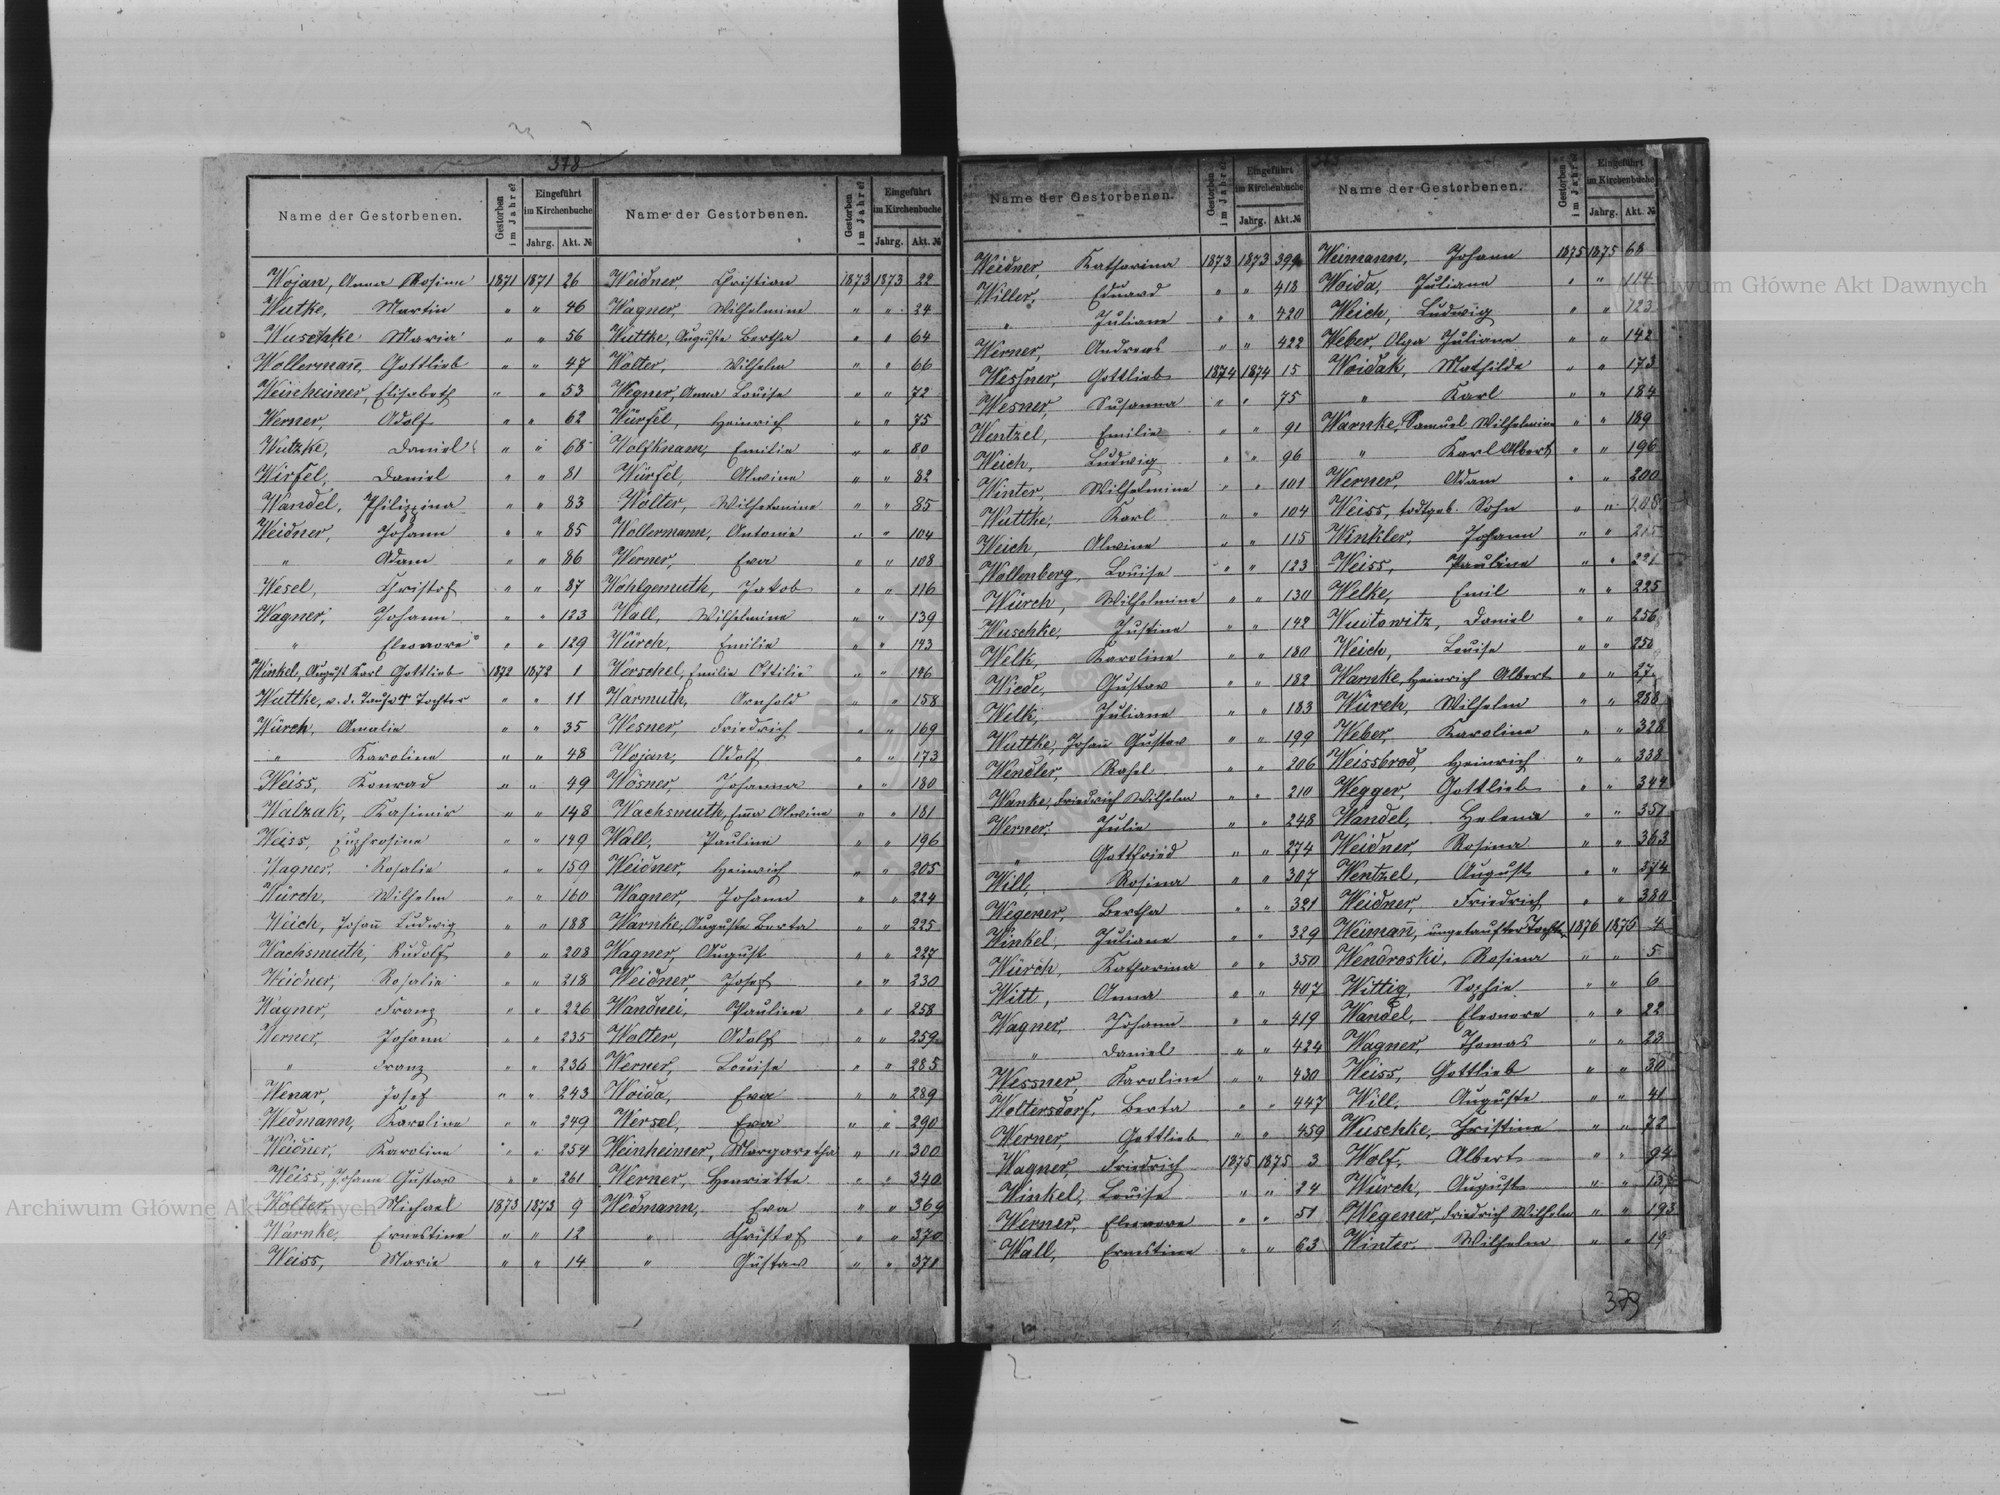 378
Name der Gestorbenen. Gestorben im Jahre? Eingeführt im Kirchenbuche Jahrg. Akt. №
Wojan, Anna Rosine 1871 1871 26
Wutke, Martin " " 46
Wuschke Maria " " 56
Wollermañ, Gottlieb " " 47
Weinheimer, Elisabeth " " 53
Werner, Adolf " " 62
Wutzke, Daniel " " 68
Wirfel, Daniel " " 81
Wandel, Philippina " " 83
Weidner, Johann " " 85
" Adam " " 86
Wesel, Christof " " 87
Wagner, Johann " " 123
" Eleonore " " 129
Winkel, August Karl Gottlieb 1872 1872 1
Wuttke, v. d. Taufe † Tochter " " 11
Würch, Amalie " " 35
" Karoline " " 48
Weiss, Konrad " " 49
Walzak, Kasimir " " 148
Weiss, Euphrosine " " 149
Wagner, Rosalie " " 159
Würch, Wilhelm " " 160
Weich, Johañ Ludwig " " 188
Wachsmuth, Rudolf " " 208
Weidner, Rosalie " " 218
Wagner, Franz " " 226
Werner, Johann " " 235
" Franz " " 236
Wenar, Josef " " 243
Wedmann, Karoline " " 249
Weidner, Karoline " " 254
Weiss, Johann Gustav " " 261
Wolter, Michael 1873 1873 9
Warnke, Ernestine " " 12
Weiss, Marie " " 14
Name der Gestorbenen. Gestorben im Jahre? Eingeführt im Kirchenbuche Jahrg. Akt. №
Weidner, Christian 1873 1873 22
Wagner, Wilhelmine " " 24
Wuttke, Auguste Bertha " " 64
Wolter, Wilhelm " " 66
Wegner, Anna Louise " " 72
Würfel, Heinrich " " 75
Wolfknam, Emilie " " 80
Würfel, Alwine " " 82
Wolter, Wilhelmine " " 85
Wollermann, Antonie " " 104
Werner, Eva " " 108
Wohlgemuth, Jakob " " 116
Wall, Wilhelmine " " 139
Würch, Emilie " " 143
Worschel, Emilie Ottilie " " 146
Warmuth, Arnhold " " 158
Wesner, Friedrich " " 169
Wojan, Adolf " " 173
Wösner, Johanna " " 180
Wachsmuth, Em̃a Alwine " " 181
Wall, Pauline " " 196
Weidner, Heinrich " " 205
Wagner, Johann " " 224
Warnke, Auguste Berta " " 225
Wagner, August " " 227
Weidner, Josef " " 230
Wandnei, Pauline " " 258
Walter, Adolf " " 259
Werner, Louise " " 285
Woida, Eva " " 289
Wersel, Eva " " 290
Weinheimer, Margaretha " " 300
Werner, Henriette " " 340
Wedmann, Eva " " 369
" Christof " " 370
" Gustav " " 371
Name der Gestorbenen. Gestorben im Jahre? Eingeführt im Kirchenbuche Jahrg. Akt. №
Weidner, Katharina 1873 1873 399
Willer, Eduard " " 418
" Juliane " " 420
Werner, Andreas " " 422
Wessner, Gottlieb 1874 1874 15
Wesner, Susanna " " 75
Wentzel, Emilie " " 91
Weich, Ludwig " " 96
Winter, Wilhelmine " " 101
Wuttke, Karl " " 104
Weich, Alwine " " 115
Wollenberg, Louise " " 123
Würch, Wilhelmine " " 130
Wuschke, Justine " " 142
Welk, Karoline " " 180
Wiede, Gustav " " 182
Welk, Juliane " " 183
Wuttke, Johañ Gustav " " 199
Wendler, Rahel " " 206
Wanke, Friedrich Wilhelm " " 210
Werner, Julie " " 248
" Gottfried " " 274
Will, Rosina " " 307
Wegener, Bertha " " 321
Winkel, Juliane " " 329
Würch, Katharina " " 350
Witt, Anna " " 407
Wagner, Johann " " 419
" Daniel " " 424
Wessner, Karoline " " 430
Woltersdorf, Berta " " 447
Werner, Gottlieb " " 459
Wagner, Friedrich 1875 1875 3
Winkel, Louise " " 24
Werner, Eleonore " " 51
Wall, Ernestine " " 63
Name der Gestorbenen. Gestorben im Jahre? Eingeführt im Kirchenbuche Jahrg. Akt. №
Weimann, Johann 1875 1875 68
Woida, Juliane " " 114
Weich, Ludwig " " 123
Weber, Olga Juliane " " 142
Woidak, Mathilde " " 173
" Karl " " 184
Warnke, Samuel Wilhelmine " " 189
" Karl Albert " " 196
Werner, Adam " " 200
Weiss, todtgeb. Sohn " " 208
Winkler, Johann " " 215
Weiss, Pauline " " 221
Welke, Emil " " 225
Wuitowitz, Daniel " " 256
Weich, Louise " " 258
Warnke, Heinrich Albert " " 27
Würch, Wilhelm " " 288
Weber, Karoline " " 328
Weissbrod, Heinrich " " 338
Wegger, Gottlieb " " 344
Wandel, Helena " " 351
Weidner, Rosina " " 363
Wentzel, August " " 374
Weidner, Friedrich " " 380
Weiman, ungetaufte Tochter 1876 1876 4
Wendroski, Rosina " " 5
Wittig, Sophie " " 6
Wandel, Eleonore " " 22
Wagner, Thomas " " 23
Weiss, Gottlieb " " 30
Will, Auguste " " 41
Wuschke, Christine " " 72
Wolf, Albert " " 94
Würch, August " " 135
Wegener, Friedrich Wilhelm " " 193
Winter, Wilhelm " " 19
379
Archiwum Główne Akt Dawnych
Archiwum Główne Akt Dawnych